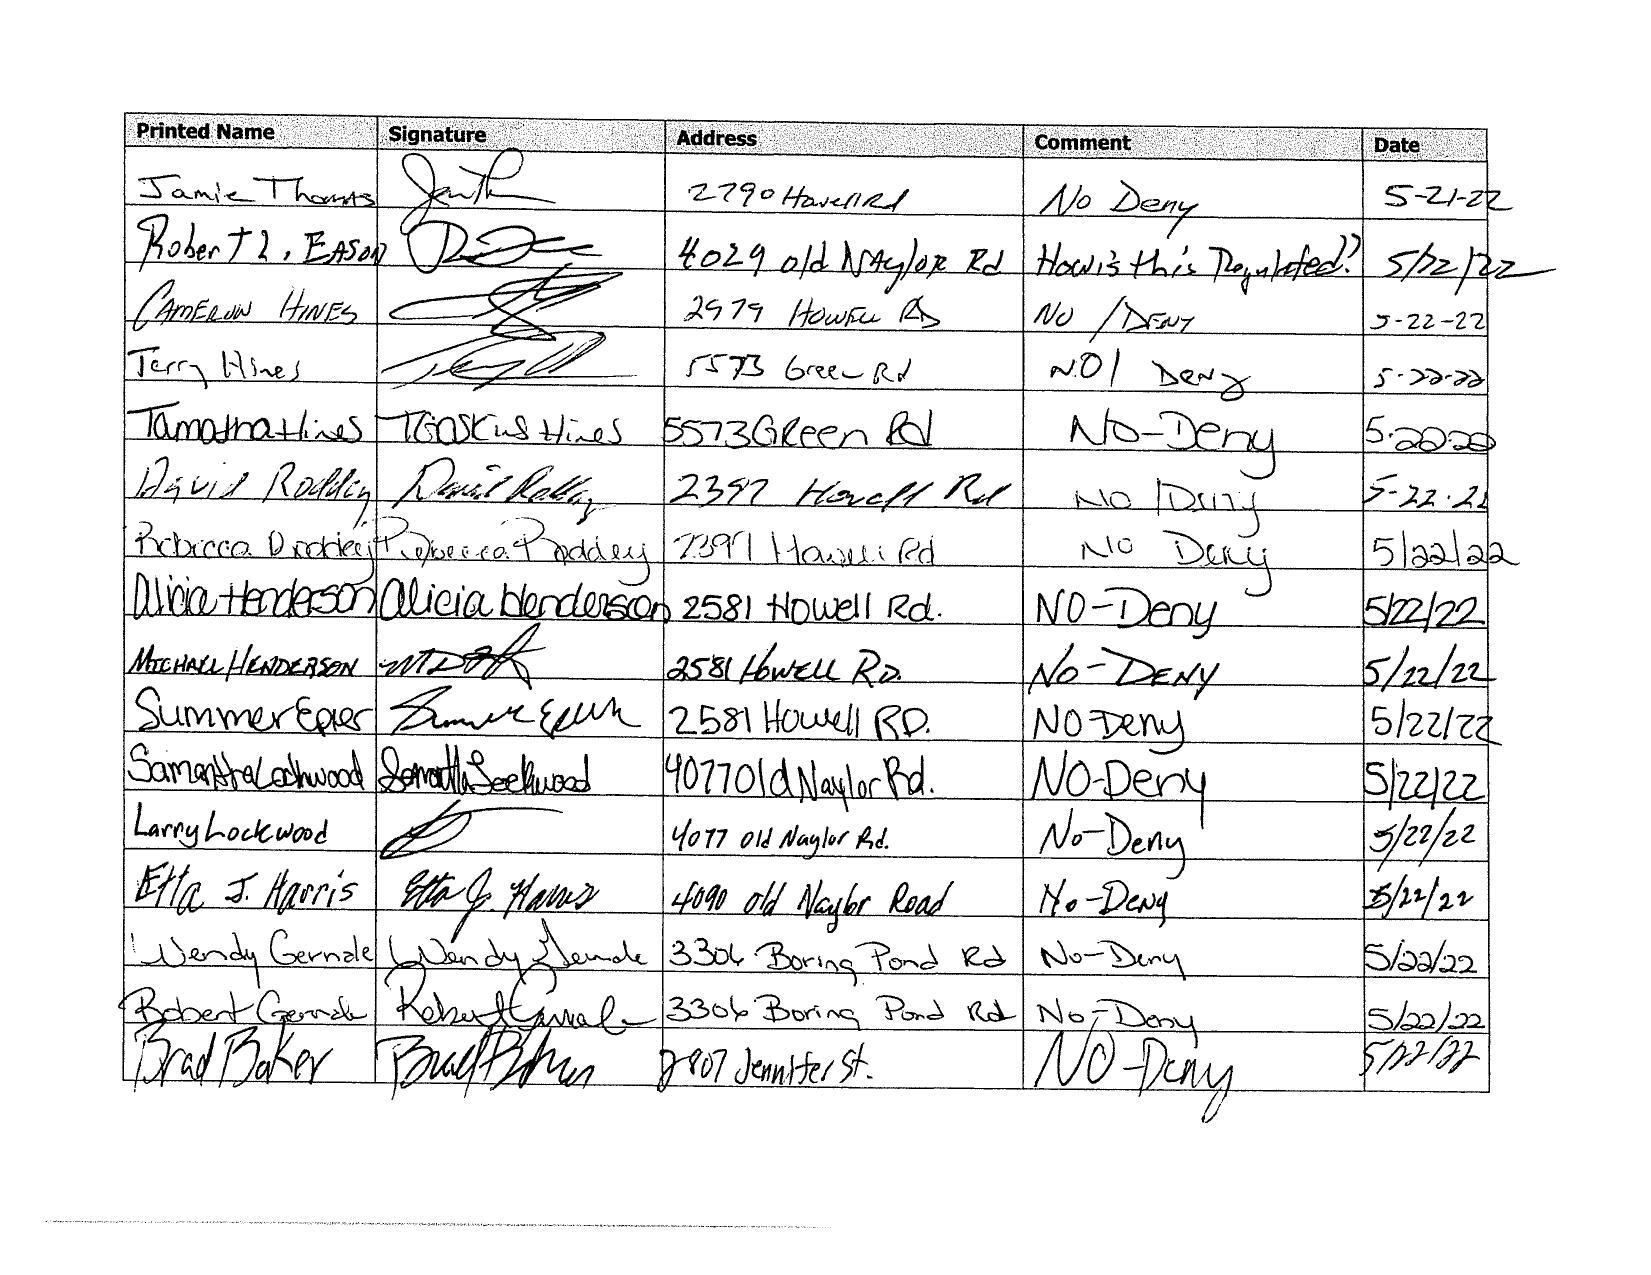 Printed Name Signature Address Comment Date
Jamie Thomas 2790 Howell Rd No Deny 5-21-22
Robert L. EASON 4029 old NAylor Rd How is this Regulated?? 5/22/22
CAMERON HINES 2979 HOWELL RD NO /DENY 5-22-22
Terry Hines 5573 Green Rd NO/ Deny 5-22-22
Tamatha Hines TGaskins Hines 5573 GReen Rd NO-Deny 5-2020
David Roddey David Roddey 2397 Howell Rd NO /Deny 5-22-22
Rebecca Roddey Rebecca Roddey 2397 Howell Rd NO Deny 5/22/22
Alicia Henderson Alicia Henderson 2581 Howell Rd. NO-Deny 5/22/22
MICHAEL HENDERSON 2581 HOWELL RD. NO-DENY 5/22/22
Summer Epier Summer 2581 Howell RD. NO-Deny 5/22/22
Samantha Lockwood Samantha Lockwood 4077 Old Naylor Rd. NO-Deny 5/22/22
Larry Lockwood 4077 Old Naylor Rd. No-Deny 5/22/22
Etta J. Harris Etta J. Harris 4090 old Naylor Road No-Deny 5/22/22
Wendy Gernale Wendy Gernale 3306 Boring Pond Rd No-Deny 5/22/22
Robert Gernale Robert Gernale 3306 Boring Pond Rd No-Deny 5/22/22
Brad Baker Brad Baker 2907 Jennifer St. NO-Deny 5/22/22